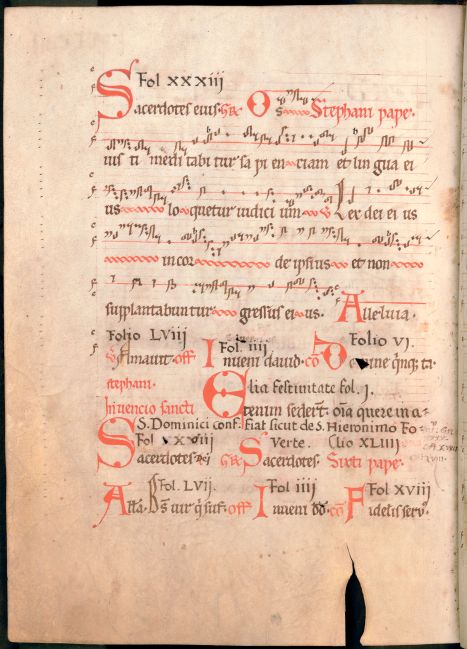 Fol xxxiii
Sacerdotes eius. GR. Os Stephani pape.
ius ti medi tabi tur sa pi en ciam et lin gua ei
us lo quetur iudici um V Lex dei ei us
in cor de ipsius et non
supplantabun tur gressus ei us. Alleluia.
Folio LVIII Fol. IIII Folio VI.
V Amavit. off Inveni david. co Domine quinq; ta
stephani. Elia festivitate fol. I.
Invencio sancti Etenim sedert. oia quere in a
S. Dominici conf. Fiat sicut de S. Hieronimo Fo
Verte. (lio XLIII)
Sacerdotes. dei GR. Sacerdotes. Sixti pape.
Fol. LVII. Fol IIII Fol XVIII
Alla. Bs vir q suf. off Inveni dd. co Fidelis serv.